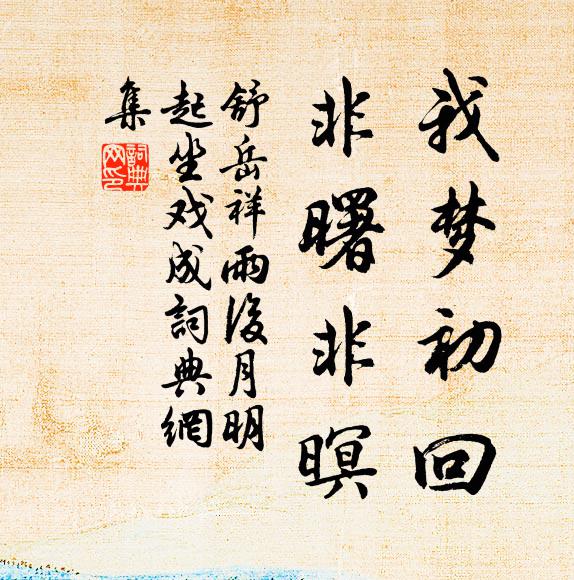 我梦初回
非曙非暝
舒岳祥雨後月明
起坐戏成詞典網
集
詞典
网印